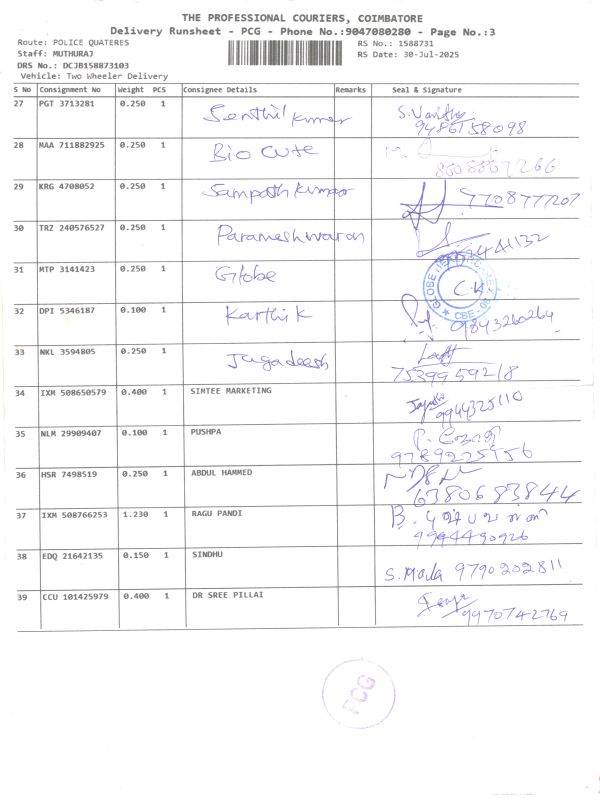 THE PROFESSIONAL COURIERS, COIMBATORE
Delivery Runsheet - PCG - Phone No.:9047080280 - Page No.:3
Route: POLICE QUATERES RS No.: 1588731
Staff: MUTHURAJ RS Date: 30-Jul-2025
DRS No.: DCJB158873103
Vehicle: Two Wheeler Delivery
S No Consignment No Weight PCS Consignee Details Remarks Seal & Signature
27 PGT 3713281 0.250 1 Senthil Kumar 9486758098
28 MAA 711882925 0.250 1 Bio cute 8608867266
29 KRG 4708052 0.250 1 Sampath Kumar 7708777207
30 TRZ 240576527 0.250 1 Parameshwaran
31 MTP 3141423 0.250 1 Globe C.K
32 DPI 5346187 0.100 1 Karthik 9843260264
33 NKL 3594805 0.250 1 Jagadeesh 7539959218
34 IXM 508650579 0.400 1 SIMTEE MARKETING 9944325110
35 NLM 29909407 0.100 1 PUSHPA 9789225956
36 HSR 7498519 0.250 1 ABDUL HAMMED 6380683844
37 IXM 508766253 1.230 1 RAGU PANDI B. 9944490926
38 EDQ 21642135 0.150 1 SINDHU S. Mala 9790202811
39 CCU 101425979 0.400 1 DR SREE PILLAI 9970742769
PCG